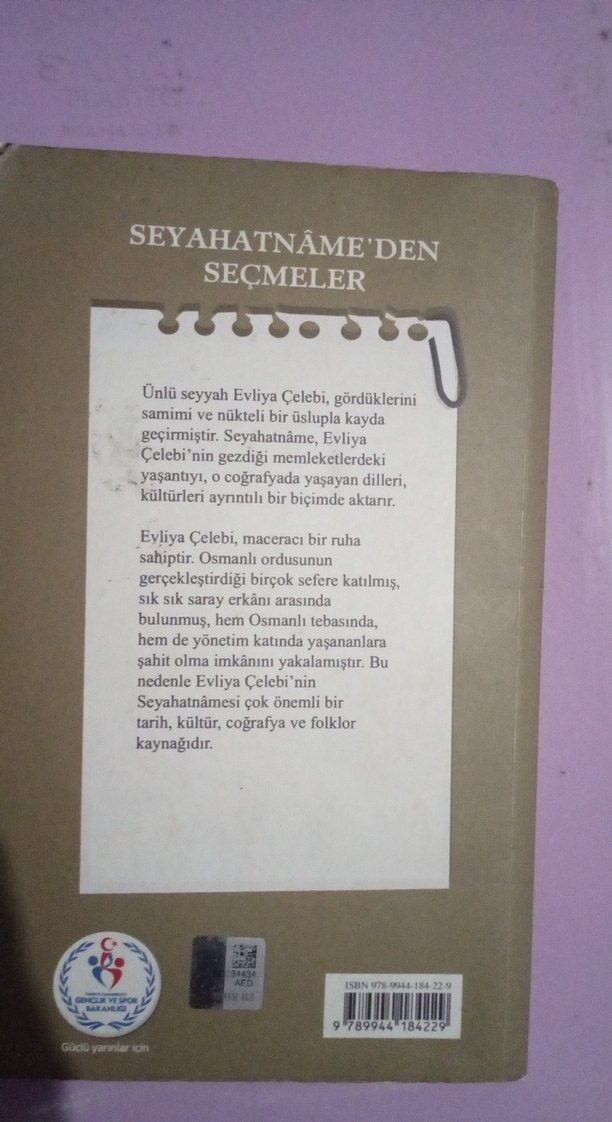 SEYAHATNÂME'DEN
SEÇMELER
Ünlü seyyah Evliya Çelebi, gördüklerini
samimi ve nükteli bir üslupla kayda
geçirmiştir. Seyahatnâme, Evliya
Çelebi'nin gezdiği memleketlerdeki
yaşantıyı, o coğrafyada yaşayan dilleri,
kültürleri ayrıntılı bir biçimde aktarır.
Evliya Çelebi, maceracı bir ruha
sahiptir. Osmanlı ordusunun
gerçekleştirdiği birçok sefere katılmış,
sık sık saray erkânı arasında
bulunmuş, hem Osmanlı tebasında,
hem de yönetim katında yaşananlara
şahit olma imkânını yakalamıştır. Bu
nedenle Evliya Çelebi'nin
Seyahatnâmesi çok önemli bir
tarih, kültür, coğrafya ve folklor
kaynağıdır.
GENÇLİK VE SPOR
BAKANLIĞI
Güçlü yarınlar için
34434
AED
ISBN 978-9944-184-22-9
9 789944 184229